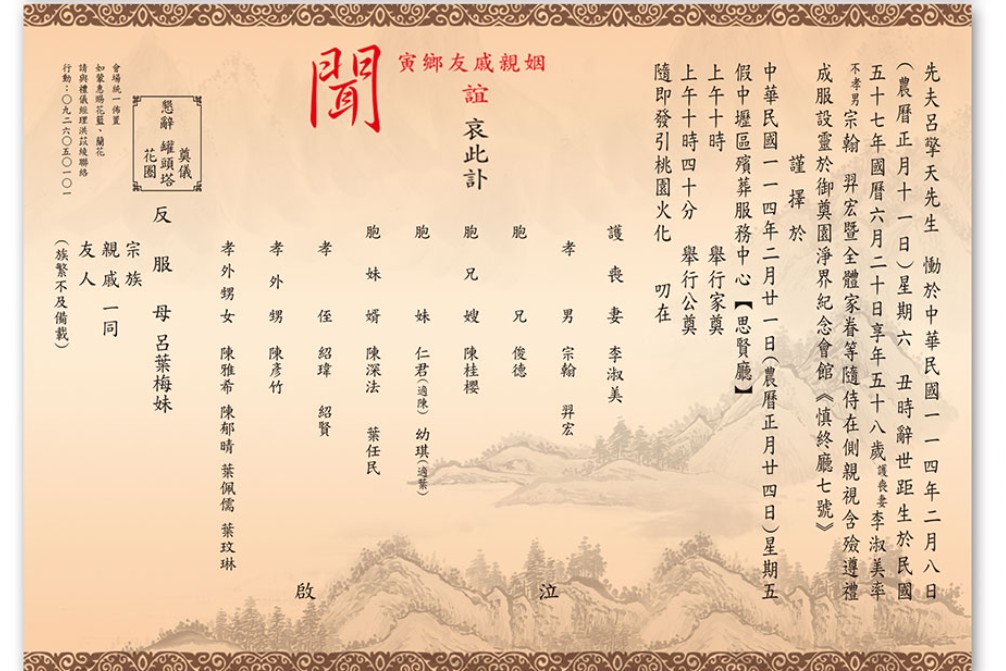 先夫呂擎天先生 慟於中華民國一一四年二月八日
(農曆正月十一日)星期六 丑時辭世距生於民國
五十七年國曆六月二十日享年五十八歲護喪妻李淑美率
不孝男宗翰 羿宏暨全體家眷等隨侍在側親視含殮遵禮
成服設靈於御奠園淨界紀念會館《慎終廳七號》
謹擇於
中華民國一一四年二月廿一日(農曆正月廿四日)星期五
假中壢區殯葬服務中心【思賢廳】
上午十時 舉行家奠
上午十時四十分 舉行公奠
隨即發引桃園火化 叨在
姻親戚友鄉寅
誼 哀此訃
聞
護喪妻 李淑美
孝男 宗翰 羿宏
胞兄 俊德
胞兄嫂 陳桂櫻
胞妹 仁君(適陳) 幼琪(適葉)
胞妹婿 陳深法 葉任民
孝侄 紹瑋 紹賢
孝外甥 陳彥竹
孝外甥女 陳雅希 陳郁晴 葉佩儒 葉玟琳
泣
啟
反服母 呂葉梅妹
宗族
親戚 一同
友人
(族繁不及備載)
懇辭
奠儀
罐頭塔
花圈
會場統一佈置
如蒙惠賜花籃、蘭花
請與禮儀經理洪苡綾聯絡
行動:○九二六○五○一○一